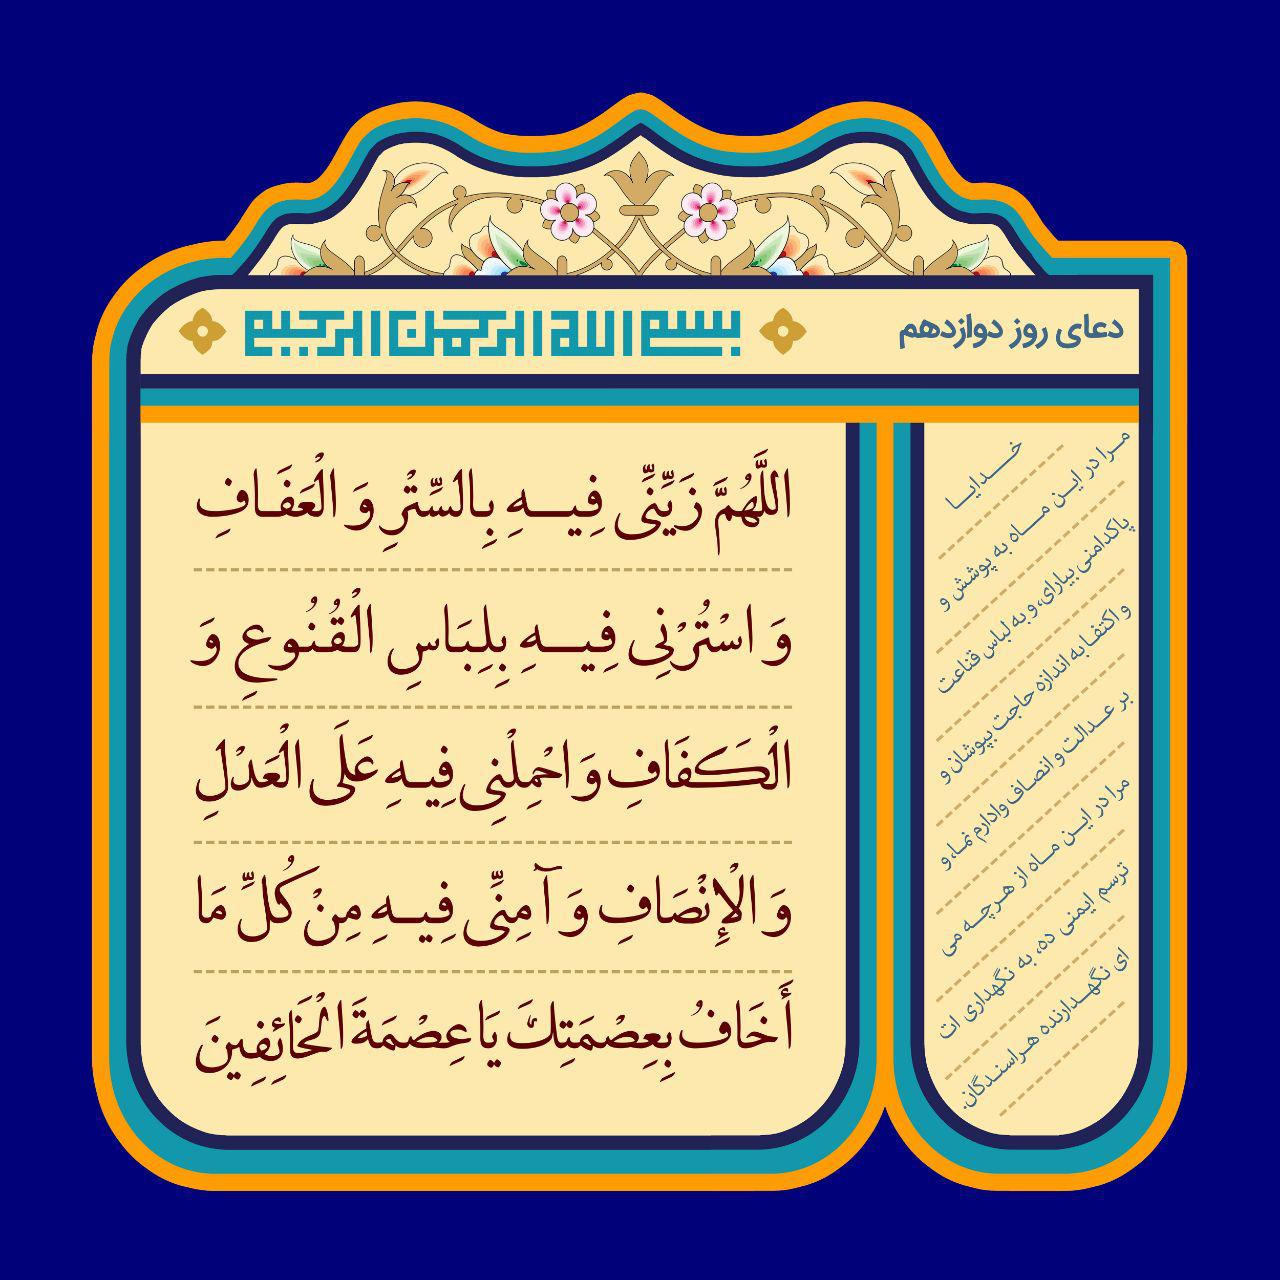 دعای روز دوازدهم
بسم الله الرحمن الرحیم
اللَّهُمَّ زَيِّنِّي فِيهِ بِالسِّتْرِ وَ الْعَفَافِ
وَ اسْتُرْنِي فِيهِ بِلِبَاسِ الْقُنُوعِ وَ
الْكَفَافِ وَ احْمِلْنِي فِيهِ عَلَى الْعَدْلِ
وَ الْإِنْصَافِ وَ آمِنِّي فِيهِ مِنْ كُلِّ مَا
أَخَافُ بِعِصْمَتِكَ يَا عِصْمَةَ الْخَائِفِينَ
خدایا
مرا در این ماه به پوشش و
پاکدامنی بیارای، و به لباس قناعت
و اکتفا به اندازه حاجت بپوشان و
بر عدالت و انصاف وادارم نما، و
مرا در این ماه از هرچه می
ترسم ایمنی ده، به نگهداری ات
ای نگهدارنده هراسندگان.